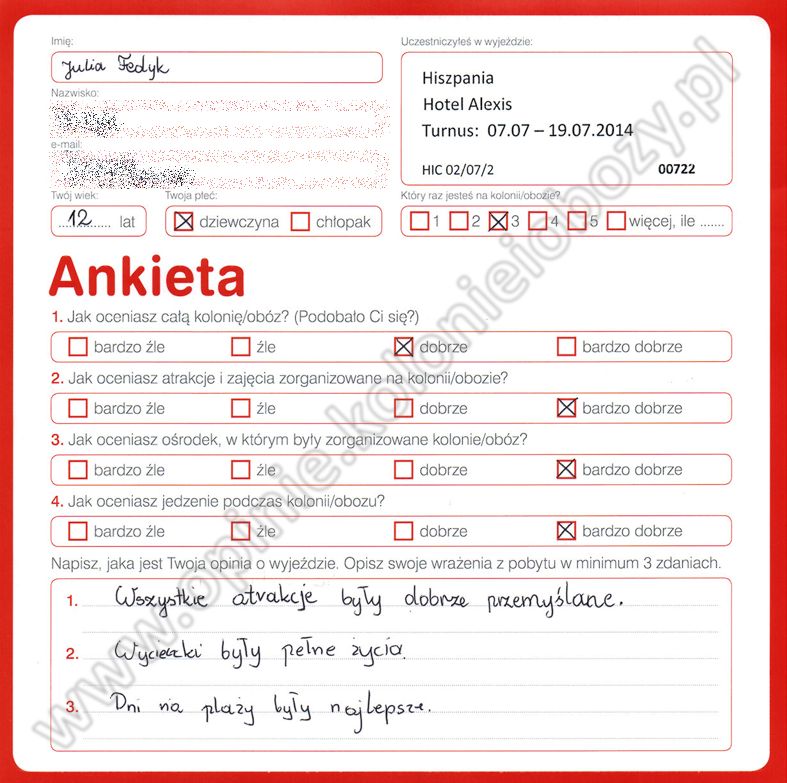 Imię:
Julia Fedyk
Nazwisko:
e-mail:
Twój wiek:
12 lat
Twoja płeć:
dziewczyna chłopak
Uczestniczyłeś w wyjeździe:
Hiszpania
Hotel Alexis
Turnus: 07.07 – 19.07.2014
HIC 02/07/2 00722
Który raz jesteś na kolonii/obozie?
1 2 3 4 5 więcej, ile .......
Ankieta
1. Jak oceniasz całą kolonię/obóz? (Podobało Ci się?)
bardzo źle źle dobrze bardzo dobrze
2. Jak oceniasz atrakcje i zajęcia zorganizowane na kolonii/obozie?
bardzo źle źle dobrze bardzo dobrze
3. Jak oceniasz ośrodek, w którym były zorganizowane kolonie/obóz?
bardzo źle źle dobrze bardzo dobrze
4. Jak oceniasz jedzenie podczas kolonii/obozu?
bardzo źle źle dobrze bardzo dobrze
Napisz, jaka jest Twoja opinia o wyjeździe. Opisz swoje wrażenia z pobytu w minimum 3 zdaniach.
1. Wszystkie atrakcje były dobrze przemyślane.
2. Wycieczki były pełne życia.
3. Dni na plaży były najlepsze.
www.opinie.kolonieiobozy.pl